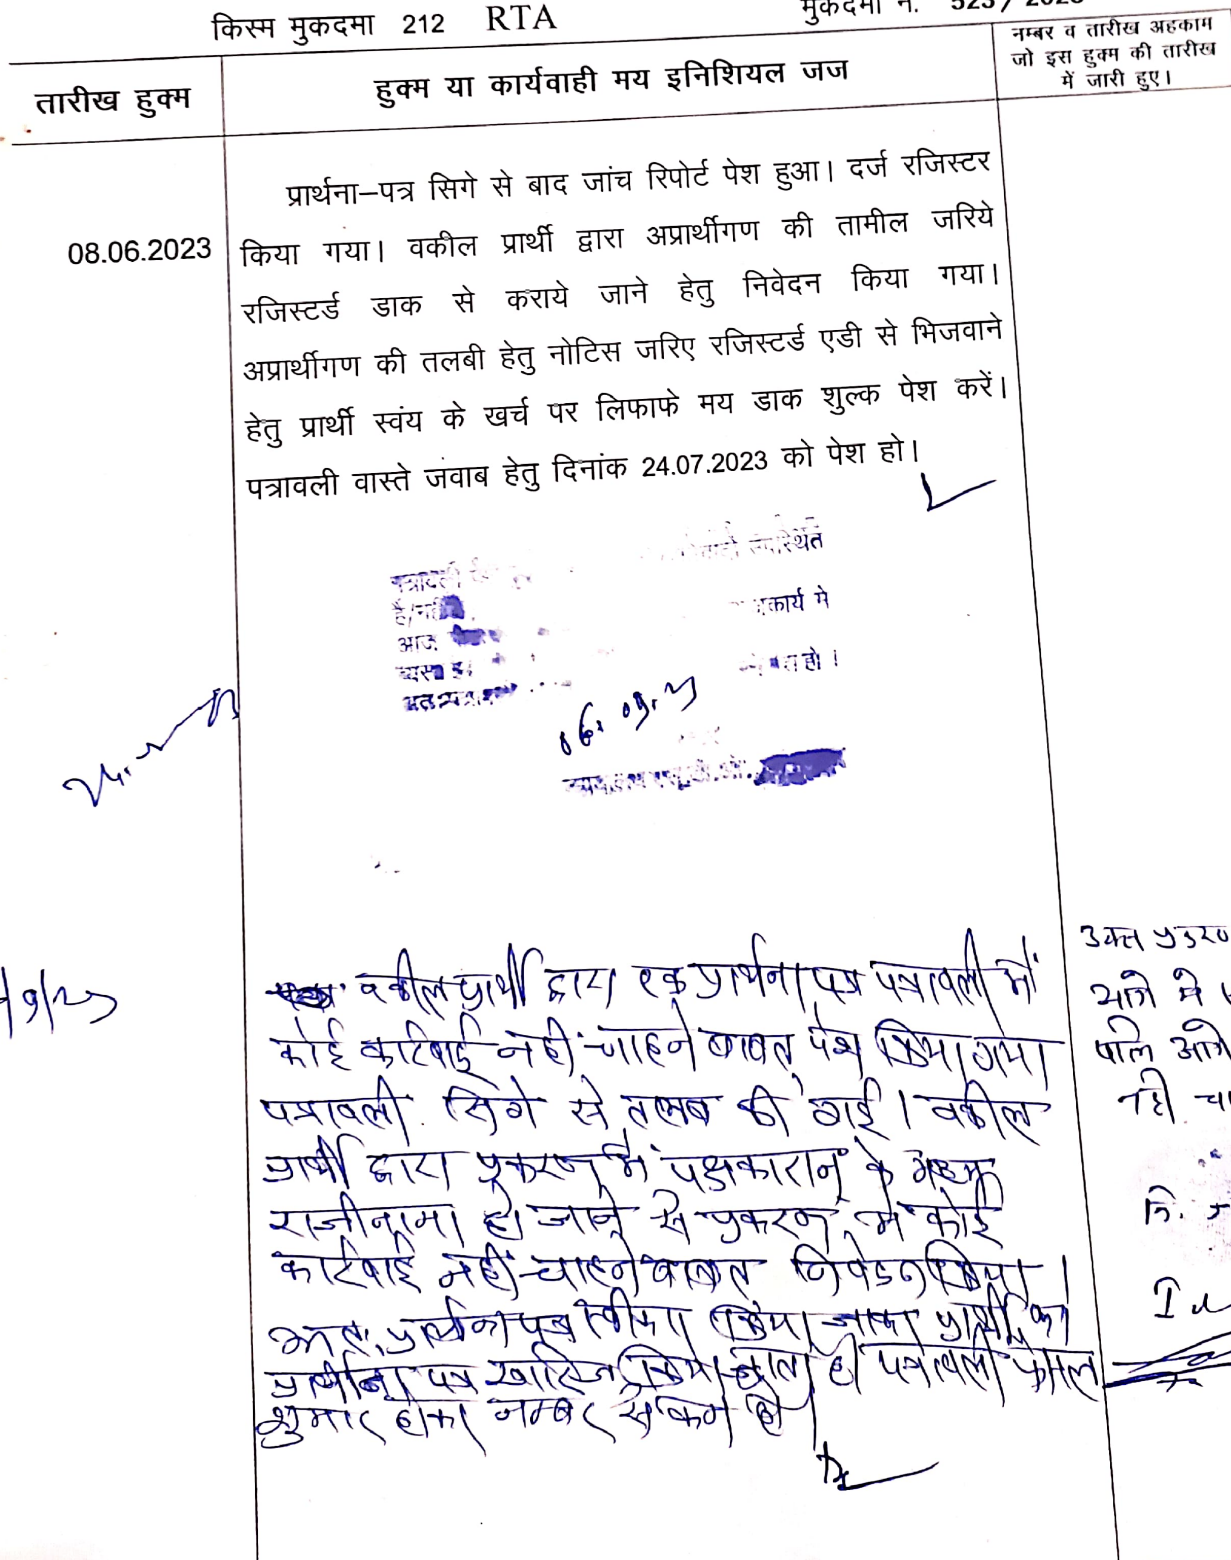 किस्म मुकदमा 212 RTA मुकदमा न. 523/
नम्बर व तारीख अहकाम
जो इस हुक्म की तारीख
में जारी हुए।
तारीख हुक्म
हुक्म या कार्यवाही मय इनिशियल जज
प्रार्थना–पत्र सिगे से बाद जांच रिपोर्ट पेश हुआ। दर्ज रजिस्टर
08.06.2023 किया गया। वकील प्रार्थी द्वारा अप्रार्थीगण की तामील जरिये
रजिस्टर्ड डाक से कराये जाने हेतु निवेदन किया गया।
अप्रार्थीगण की तलबी हेतु नोटिस जरिए रजिस्टर्ड एडी से भिजवाने
हेतु प्रार्थी स्वंय के खर्च पर लिफाफे मय डाक शुल्क पेश करें।
पत्रावली वास्ते जंवाब हेतु दिनांक 24.07.2023 को पेश हो।
पत्रावली उपस्थित
है/नही
आज
हो।
वकील प्रार्थी द्वारा एक प्रार्थना पत्र पत्रावली में
कोई कार्रवाई नहीं चाहने बाबत पेश किया गया
पत्रावली सिगे से तलब की गई। वकील
प्रार्थी द्वारा प्रकरण में पक्षकारान् के मध्य
राजीनामा हो जाने से प्रकरण में कोई
कार्रवाई नहीं चाहने बाबत निवेदन किया।
अतः प्रार्थना पत्र स्वीकार किया जाकर प्रार्थी का
प्रार्थना पत्र खारिज किया जाता है। पत्रावली फैसल
शुमार होकर नम्बर से कम हो।
उक्त प्रकरण
आगे
नही